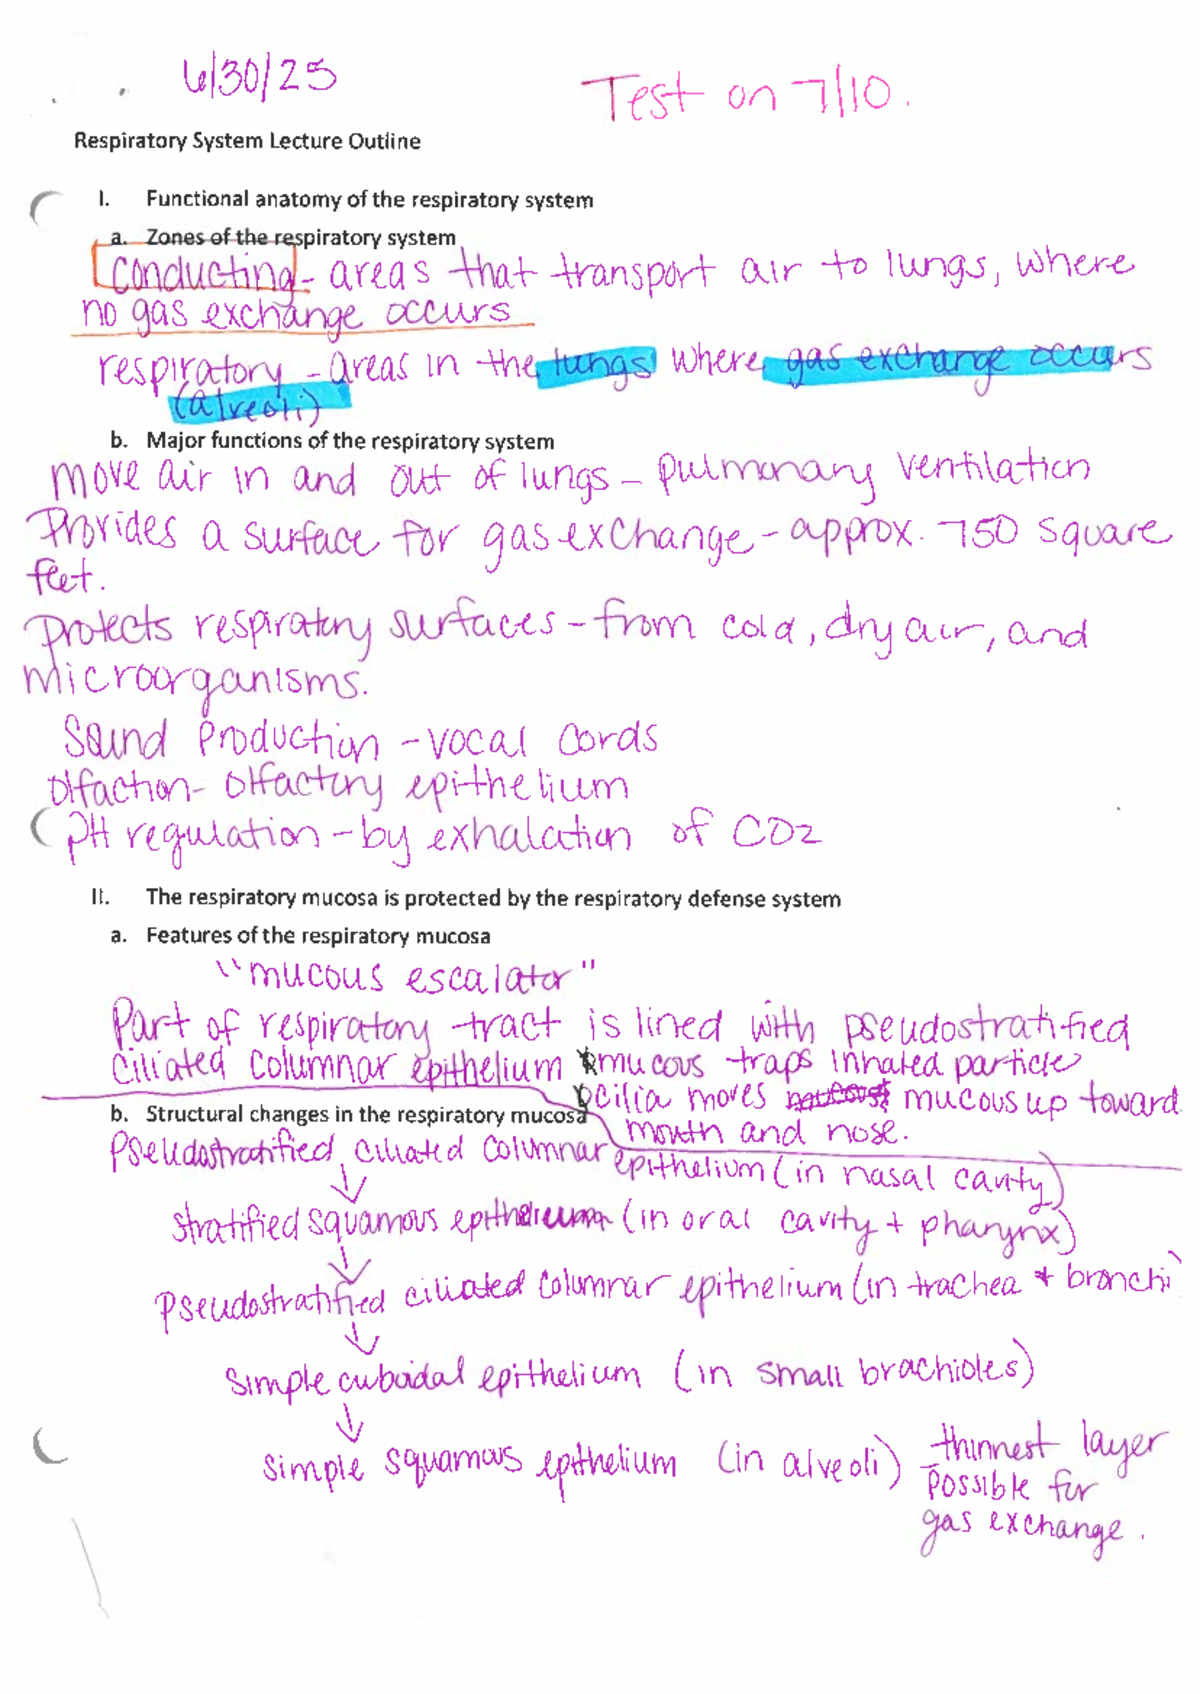 6/30/25
Test on 7/10.
Respiratory System Lecture Outline
I. Functional anatomy of the respiratory system
a. Zones of the respiratory system
conducting - areas that transport air to lungs, where
no gas exchange occurs
respiratory - areas in the lungs where gas exchange occurs
(alveoli)
b. Major functions of the respiratory system
Move air in and out of lungs - pulmonary ventilation
Provides a surface for gas exchange - approx. 750 square
feet.
Protects respiratory surfaces - from cold, dry air, and
microorganisms.
Sound Production - vocal cords
Olfaction - Olfactory epithelium
PH regulation - by exhalation of CO2
II. The respiratory mucosa is protected by the respiratory defense system
a. Features of the respiratory mucosa
"mucous escalator"
Part of respiratory tract is lined with pseudostratified
ciliated columnar epithelium *mucous traps inhaled particle
cilia moves mucous up toward
b. Structural changes in the respiratory mucosa
mouth and nose.
Pseudostratified ciliated columnar epithelium (in nasal cavity)
↓
stratified squamous epithelium (in oral cavity + pharynx)
↓
pseudostratified ciliated columnar epithelium (in trachea + bronchi)
↓
Simple cuboidal epithelium (in small brachioles)
↓
simple squamous epithelium (in alveoli) - thinnest layer
possible for
gas exchange.